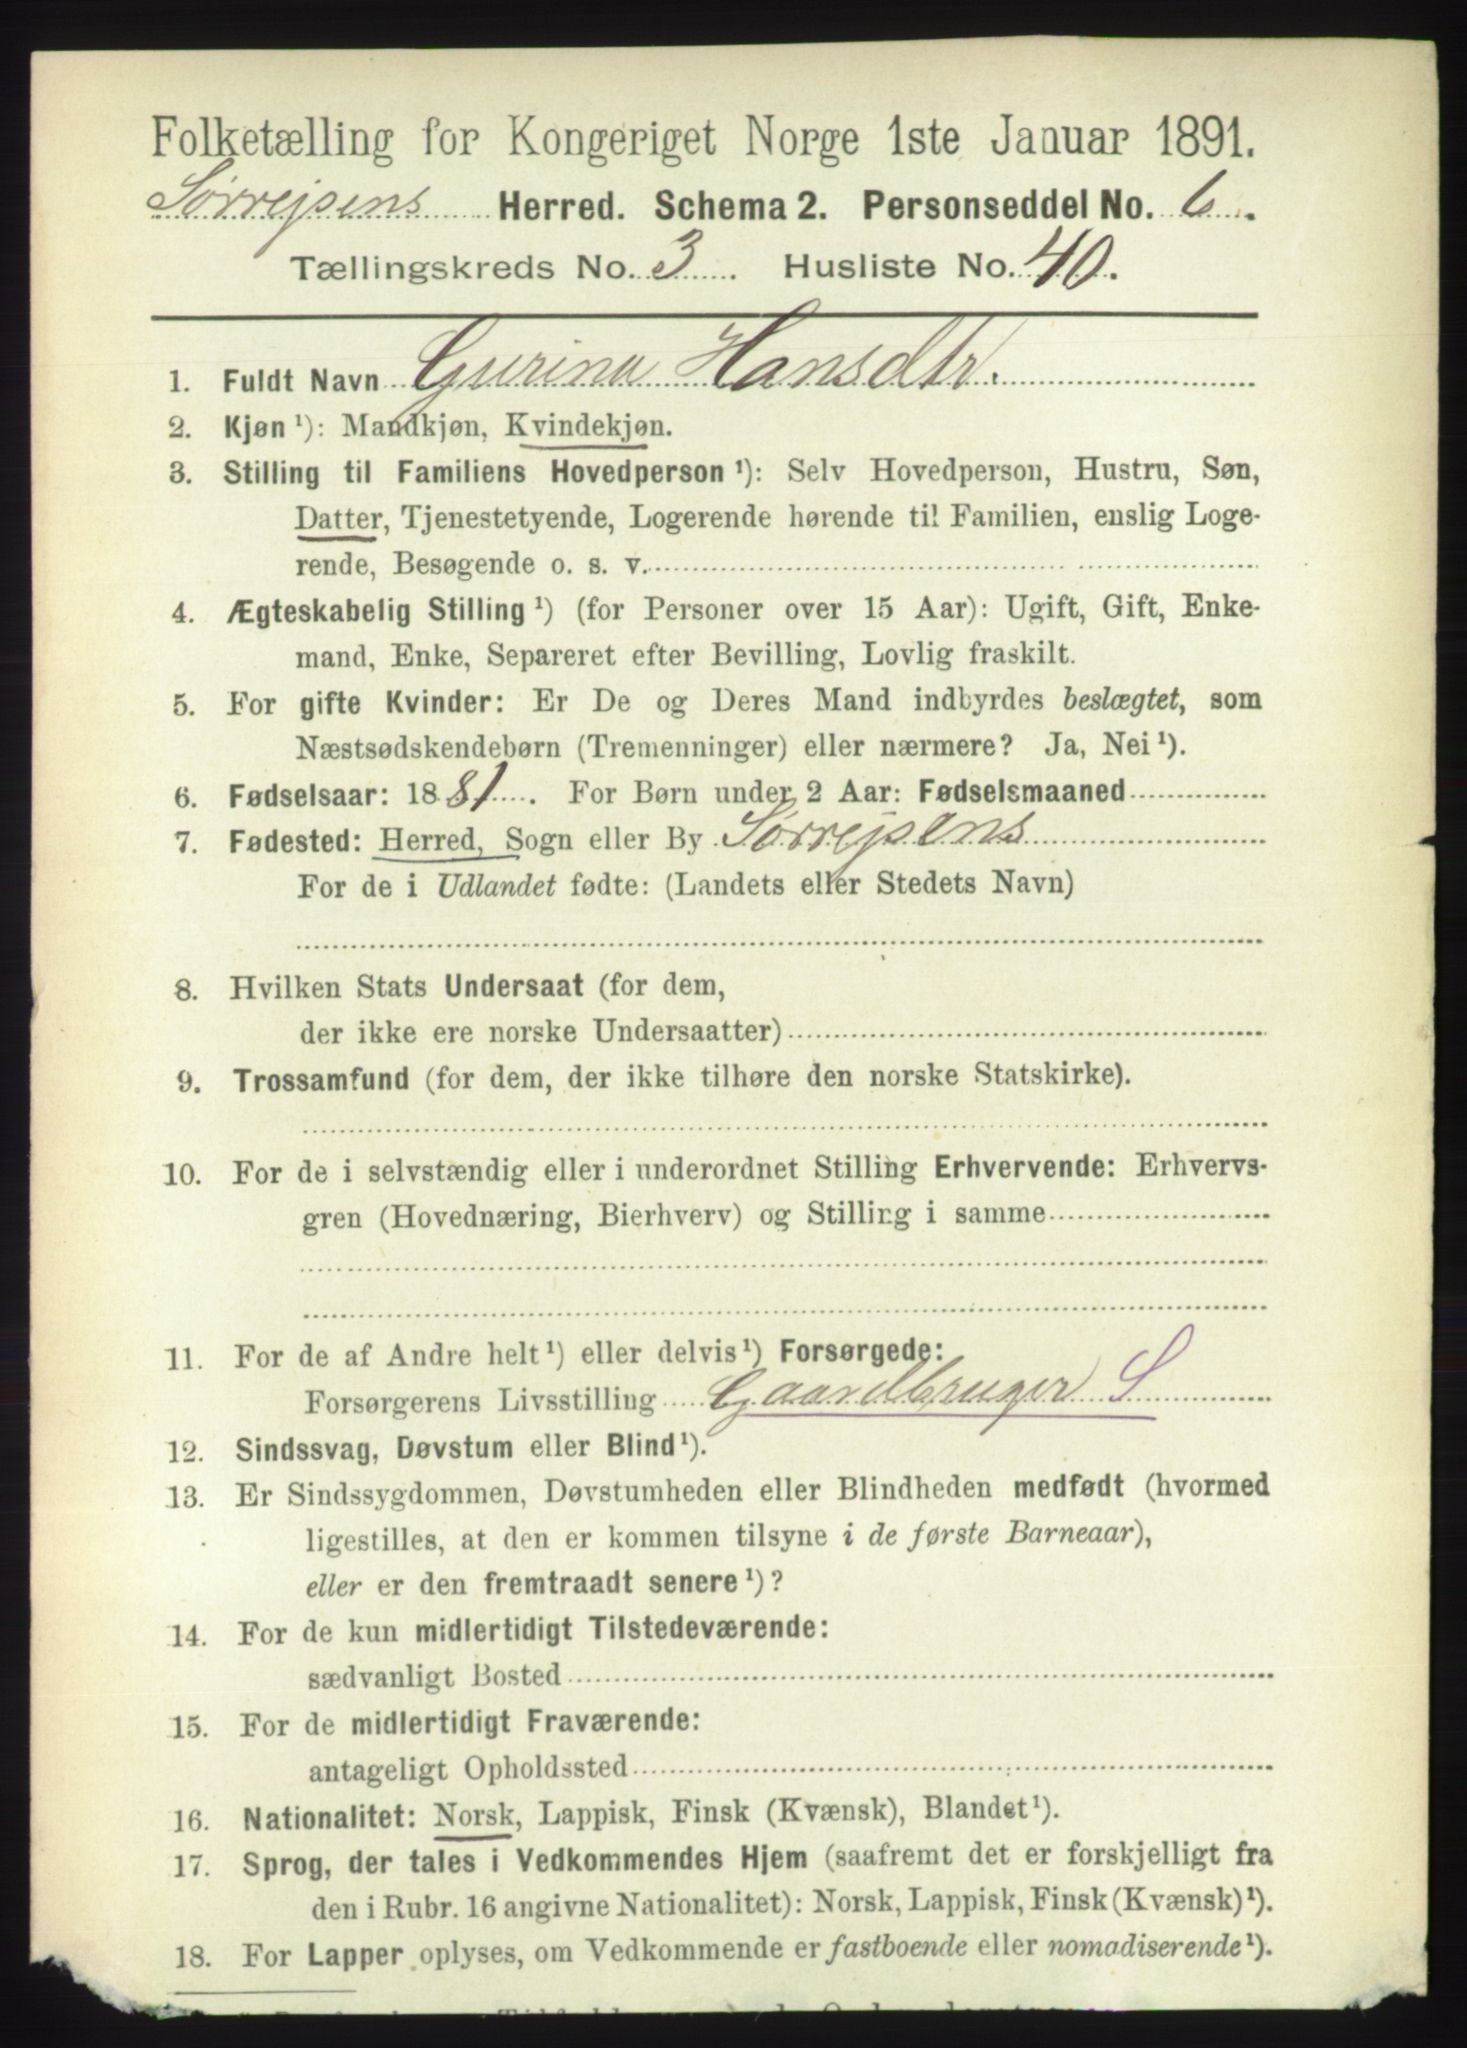 Folketælling for Kongeriget Norge 1ste Januar 1891.
Sørrejsens Herred. Schema 2. Personseddel No. 6.
Tællingskreds No. 3. Husliste No. 40.
1. Fuldt Navn Gurina Hansdtr.
2. Kjøn ¹): Mandkjøn, Kvindekjøn.
3. Stilling til Familiens Hovedperson ¹): Selv Hovedperson, Hustru, Søn,
Datter, Tjenestetyende, Logerende hørende til Familien, enslig Loge-
rende, Besøgende o. s. v.
4. Ægteskabelig Stilling ¹) (for Personer over 15 Aar): Ugift, Gift, Enke-
mand, Enke, Separeret efter Bevilling, Lovlig fraskilt.
5. For gifte Kvinder: Er De og Deres Mand indbyrdes beslægtet, som
Næstsødskendebørn (Tremenninger) eller nærmere? Ja, Nei ¹).
6. Fødselsaar: 1881. For Børn under 2 Aar: Fødselsmaaned
7. Fødested: Herred, Sogn eller By Sørrejsens
For de i Udlandet fødte: (Landets eller Stedets Navn)
8. Hvilken Stats Undersaat (for dem,
der ikke ere norske Undersaatter)
9. Trossamfund (for dem, der ikke tilhøre den norske Statskirke).
10. For de i selvstændig eller i underordnet Stilling Erhvervende: Erhvervs-
gren (Hovednæring, Bierhverv) og Stilling i samme
11. For de af Andre helt ¹) eller delvis ¹) Forsørgede:
Forsørgerens Livsstilling Gaardbruger S
12. Sindssvag, Døvstum eller Blind ¹).
13. Er Sindssygdommen, Døvstumheden eller Blindheden medfødt (hvormed
ligestilles, at den er kommen tilsyne i de første Barneaar),
eller er den fremtraadt senere ¹)?
14. For de kun midlertidigt Tilstedeværende:
sædvanligt Bosted
15. For de midlertidigt Fraværende:
antageligt Opholdssted
16. Nationalitet: Norsk, Lappisk, Finsk (Kvænsk), Blandet ¹).
17. Sprog, der tales i Vedkommendes Hjem (saafremt det er forskjelligt fra
den i Rubr. 16 angivne Nationalitet): Norsk, Lappisk, Finsk (Kvænsk) ¹).
18. For Lapper oplyses, om Vedkommende er fastboende eller nomadiserende ¹).